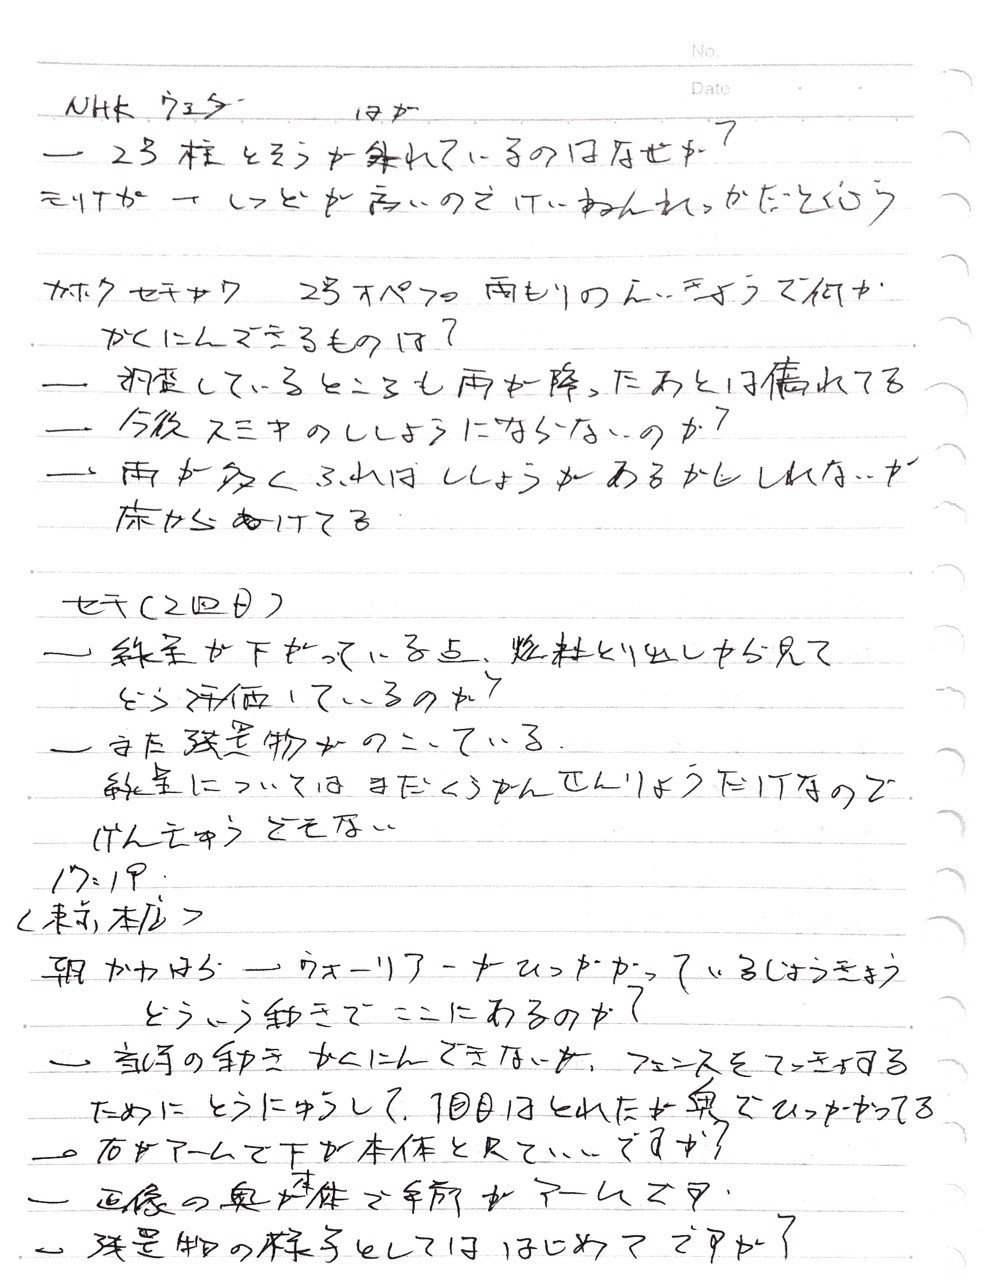 No.
Date
NHK ウェダ ほか
― 2号柱とそうが外れているのはなぜか?
モリナガ → しつどが高いのでけいねんれっかだと思う
カホク セキナク 2号オペフロ 雨もりのえいきょうで何か
かくにんできるものは?
― 調査しているところも雨が降ったあとは濡れてる
― 今後スミヤのししょうにならないのか?
― 雨が多くふればししょうがあるかもしれないが
床からぬけてる
セキ(2回目)
― 線量が下がっている点、燃料とり出しから見て
どう評価しているのか?
― まだ残置物がのこっている.
線量についてはまだくうかんせんりょうだけなので
げんきゅうできない
17:19.
<東京本店>
朝 かわはら ― ウォーリアーがひっかかっているじょうきょう
どういう動きでここにあるのか?
― 当時の動きかくにんできないが、フェンスをてっきょする
ためにとうにゅうして、1回目はとれたが奥でひっかかってる
― 右がアームで下が本体と見ていいですか?
― 画像の奥が本体で手前がアームです.
― 残置物の様子としてははじめてですか?